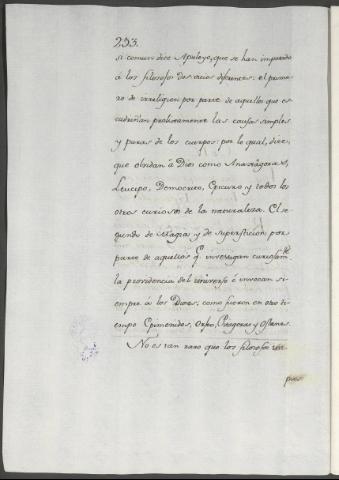 233.
si comun dice Apuleyo, que se han imputado
á los filosofos dos vicios diferentes: el prime
ro de irreligion por parte de aquellos que es
cudriñan prolixamente las causas simples
y puras de los cuerpos por lo qual, dice,
que olvidan á Dios como Anaxágoras,
Leucipo, Democrito, Epicuro y todos los
otros curiosos de la naturaleza. El se
gundo de Magia y de supersticion por
parte de aquellos q.e investigan curiosam.te
la providencia del universo é invocan si
empre á los Dioses; como fueron en otro ti
empo Epimenides, Orfeo, Pitagoras y Ostanes.
No es tan raro que los filosofos
pues